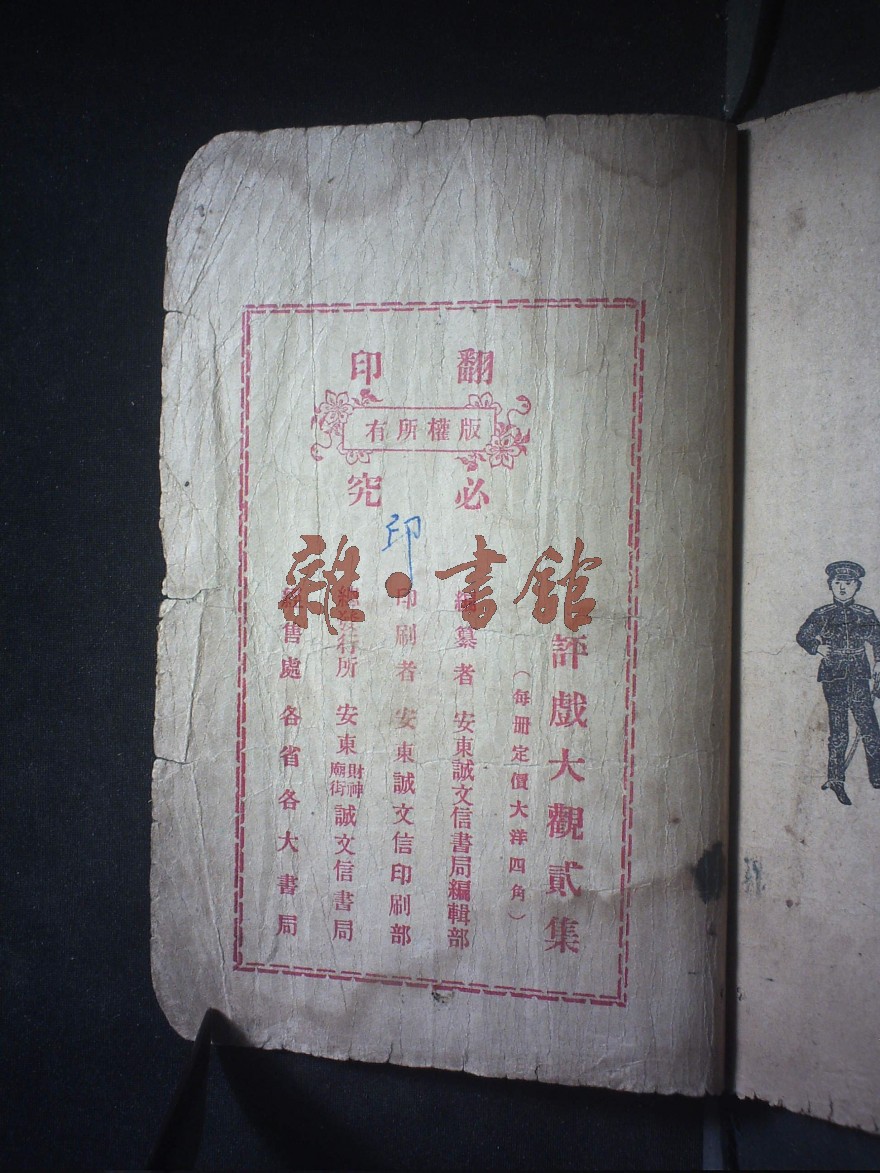 翻印
版權所有
必究
評戲大觀貳集
（每册定價大洋四角）
編纂者 安東誠文信書局編輯部
印刷者 安東誠文信印刷部
總發行所 安東財神廟街誠文信書局
經售處 各省各大書局
印
雜·書館